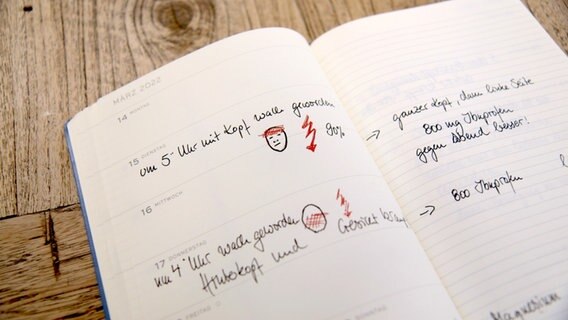 MÄRZ 2022
14 MONTAG
um 5 Uhr mit Kopf wach geworden
15 DIENSTAG
90%
16 MITTWOCH
17 DONNERSTAG
um 4 Uhr wach geworden
und Gesicht
FREITAG
→ ganzer Kopf, dann linke Seite
800 mg Ibuprofen
gegen Abend besser!
→ 800 Ibuprofen
Magnesium